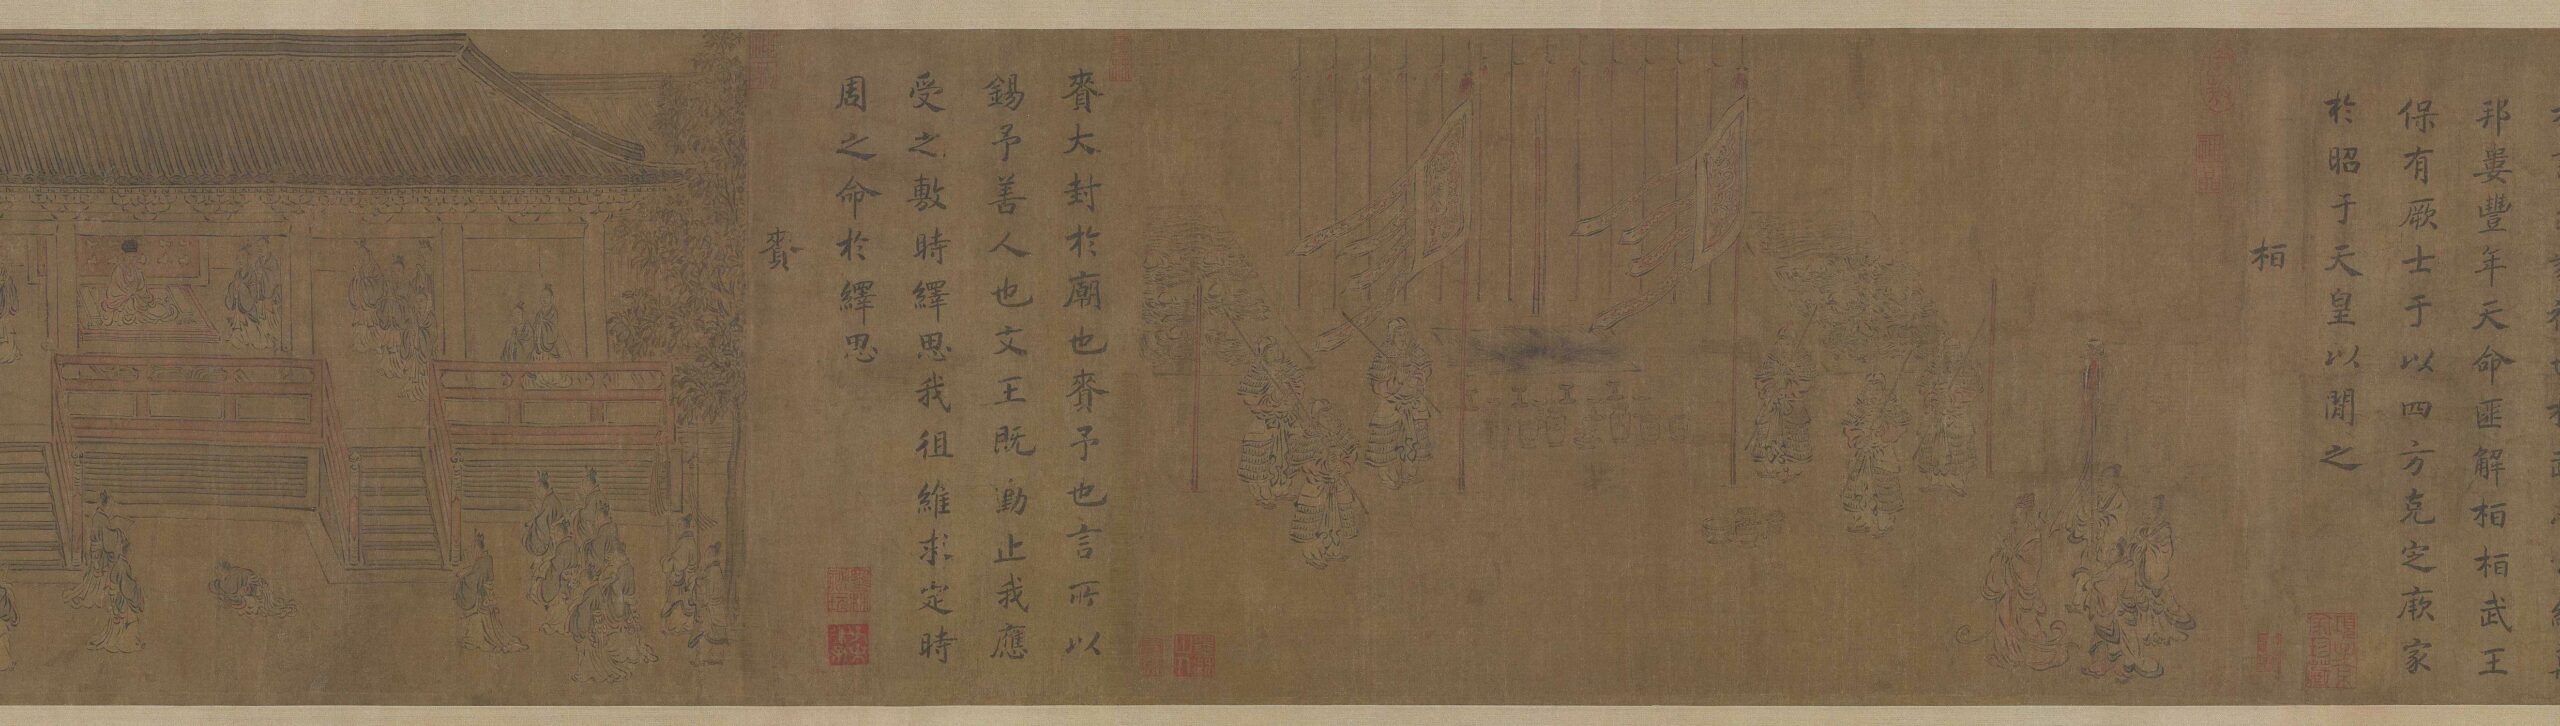 邦婁豐年天命匪解桓桓武王
保有厥士于以四方克定厥家
於昭于天皇以閒之
桓
賚大封於廟也賚予也言所以
錫予善人也文王既勤止我應
受之敷時繹思我徂維求定時
周之命於繹思
賚